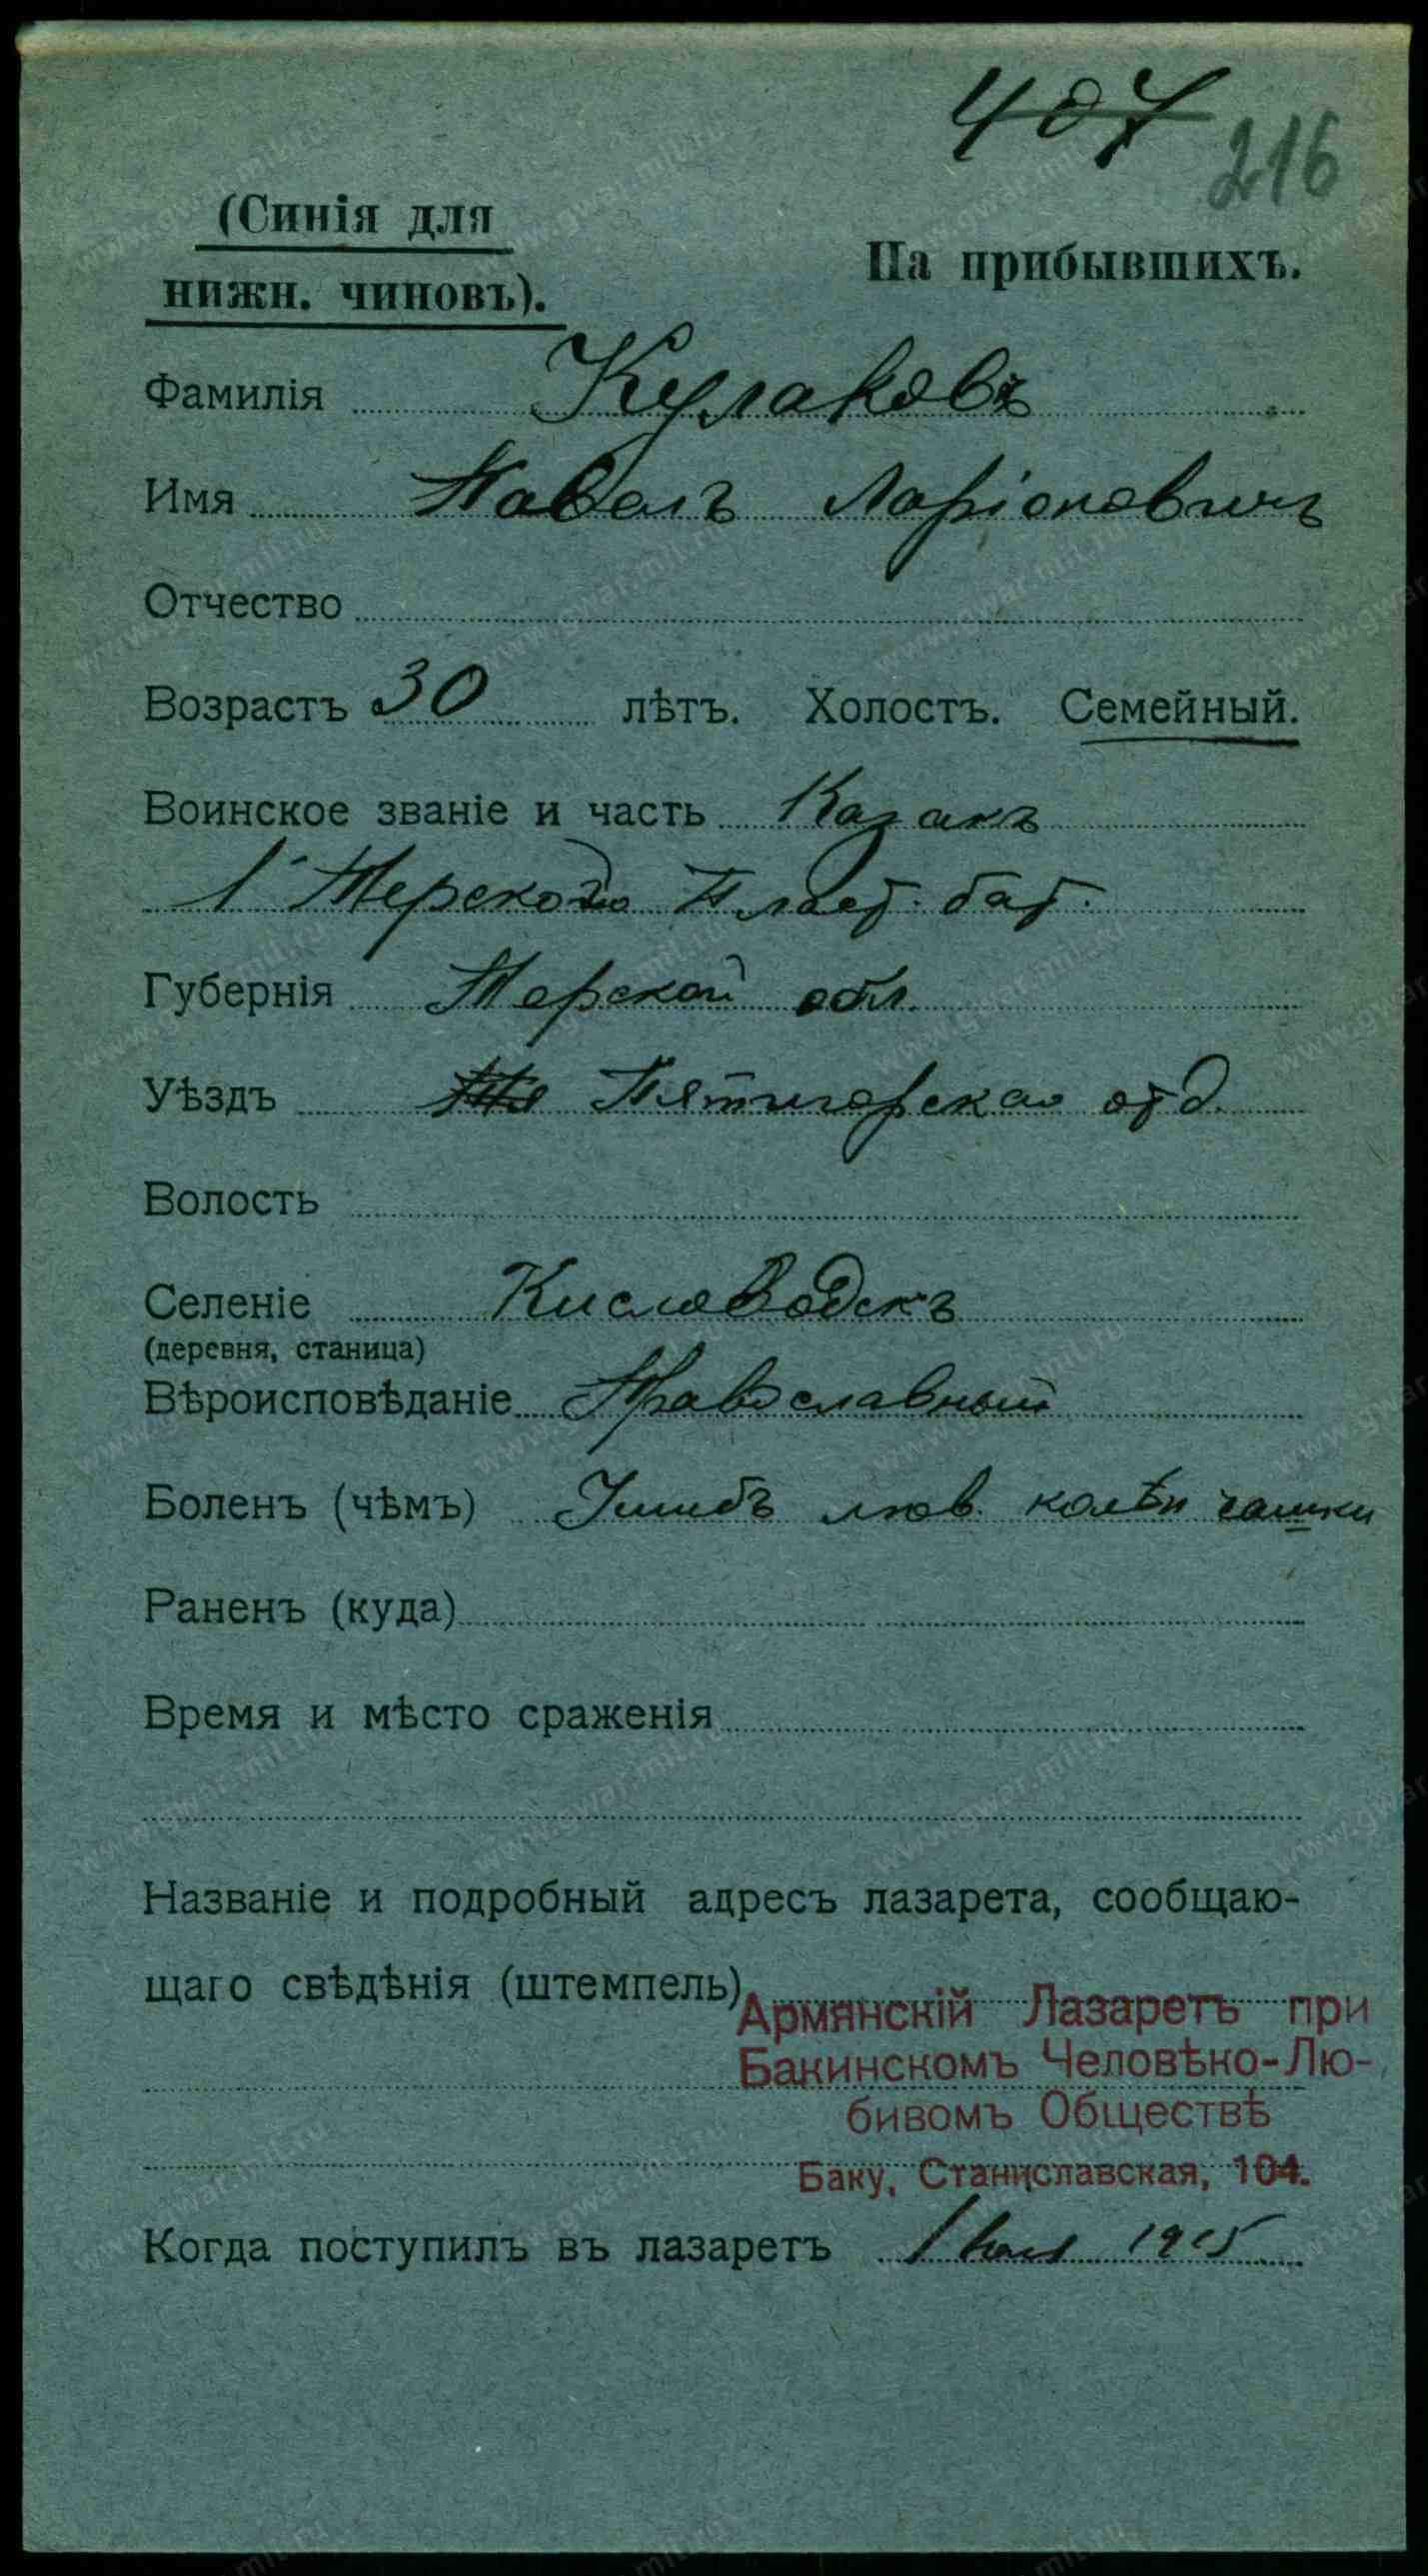 407
216
(Синія для
нижн. чиновъ).
На прибывшихъ.
Фамилія Кулаковъ
Имя Павелъ Ларіоновичъ
Отчество
Возрастъ 30 лѣтъ. Холостъ. Семейный.
Воинское званіе и часть Казакъ
1 Терского Пласт. бат.
Губернія Терской обл.
Уѣздъ Пятигорскаго отд.
Волость
Селеніе Кисловодскъ
(деревня, станица)
Вѣроисповѣданіе Православный
Боленъ (чѣмъ) Ушибъ лѣв. колѣн чашки
Раненъ (куда)
Время и мѣсто сраженія
Названіе и подробный адресъ лазарета, сообщаю-
щаго свѣдѣнія (штемпель)
Армянскій Лазаретъ при
Бакинскомъ Человѣко-Лю-
бивомъ Обществѣ
Баку, Станиславская, 104.
Когда поступилъ въ лазаретъ 1 1915